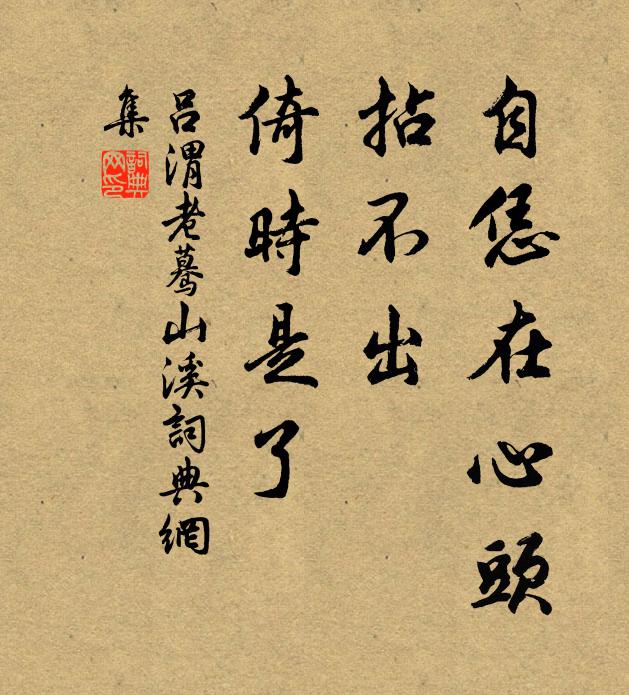 自恁在心頭
拈不出
倚時是了
呂渭老驀山溪詞典網
集
詞典
网印